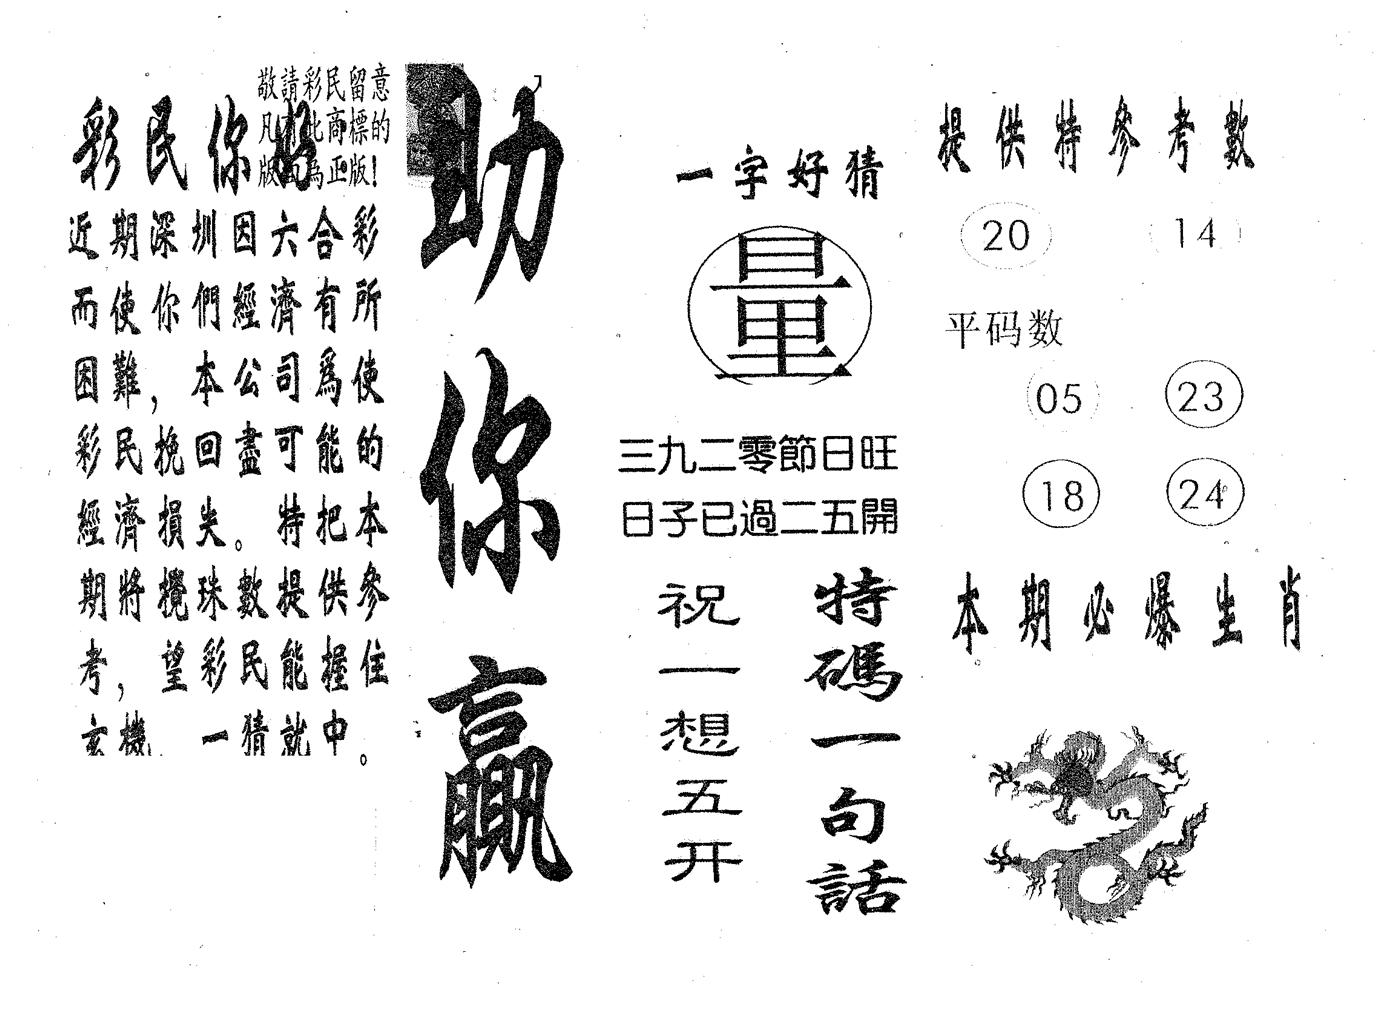 敬請彩民留意
凡有此商標的
版面為正版!
彩民你好
近期深圳因六合彩
而使你們經濟有所
困難，本公司爲使
彩民挽回盡可能的
經濟損失。特把本
期將攪珠數提供參
考，望彩民能握住
玄機 一猜就中。
助你贏
一字好猜
量
三九二零節日旺
日子已過二五開
特碼一句話
祝一想五开
提供特參考數
20 14
平码数
05 23
18 24
本期必爆生肖